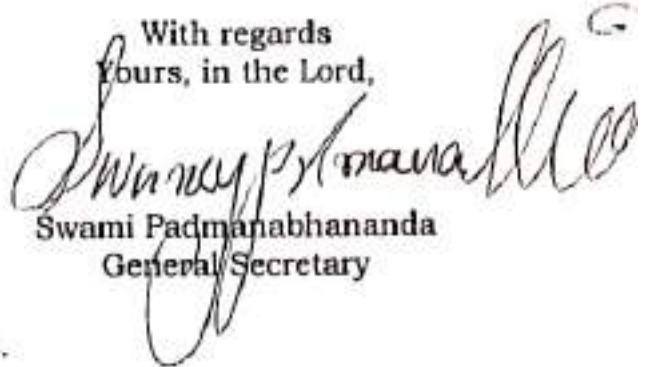 With regards
Yours, in the Lord,
Swami Padmanabhananda
General Secretary